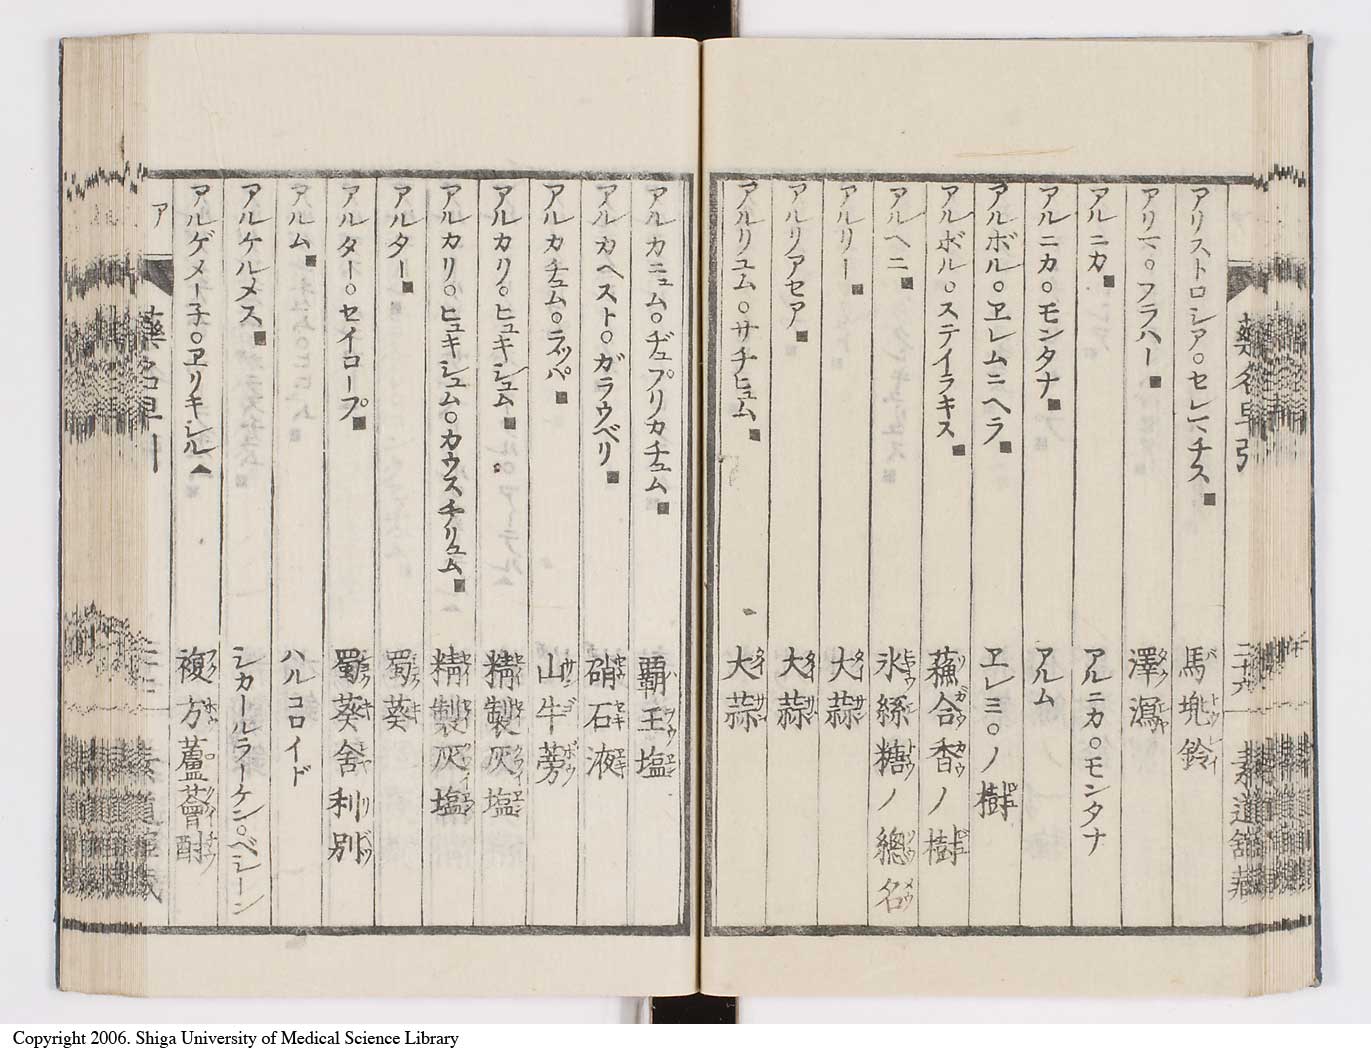 藥名早引 二十六 素道館藏
アリストロシア○セレマチス■ 馬兜鈴
アリマ○フラハー■ 澤瀉
アルニカ■ アルニカ○モンタナ
アルニカ○モンタナ■ アルム
アルボル○ヱレムニヘラ■ ヱレミ○ノ樹
アルボル○ステイラキス■ 蘓合香ノ樹
アルヘニ■ 氷綠糖ノ總名
アルリー■ 大蒜
アルリアセア■ 大蒜
アルリユム○サチヒユム■ 大蒜
アルカニユム○ヂユプリカチユム■ 覇王塩
アルカヘスト○ガラウベリ■ 硝石液
アルカチユム○ラツパ■ 山牛蒡
アルカリ○ヒユキシユム■ 精製灰塩
アルカリ○ヒユキシユム○カウスチリユム■ 精製灰塩
アルター■ 蜀葵
アルター○セイロープ■ 蜀葵舎利別
アルム■ ハルコロイド
アルケルメス■ シカールラーケン○ベシーン
アルゲメー子○ヱリキシル▲ 複方蘆薈酎
ア 藥名早